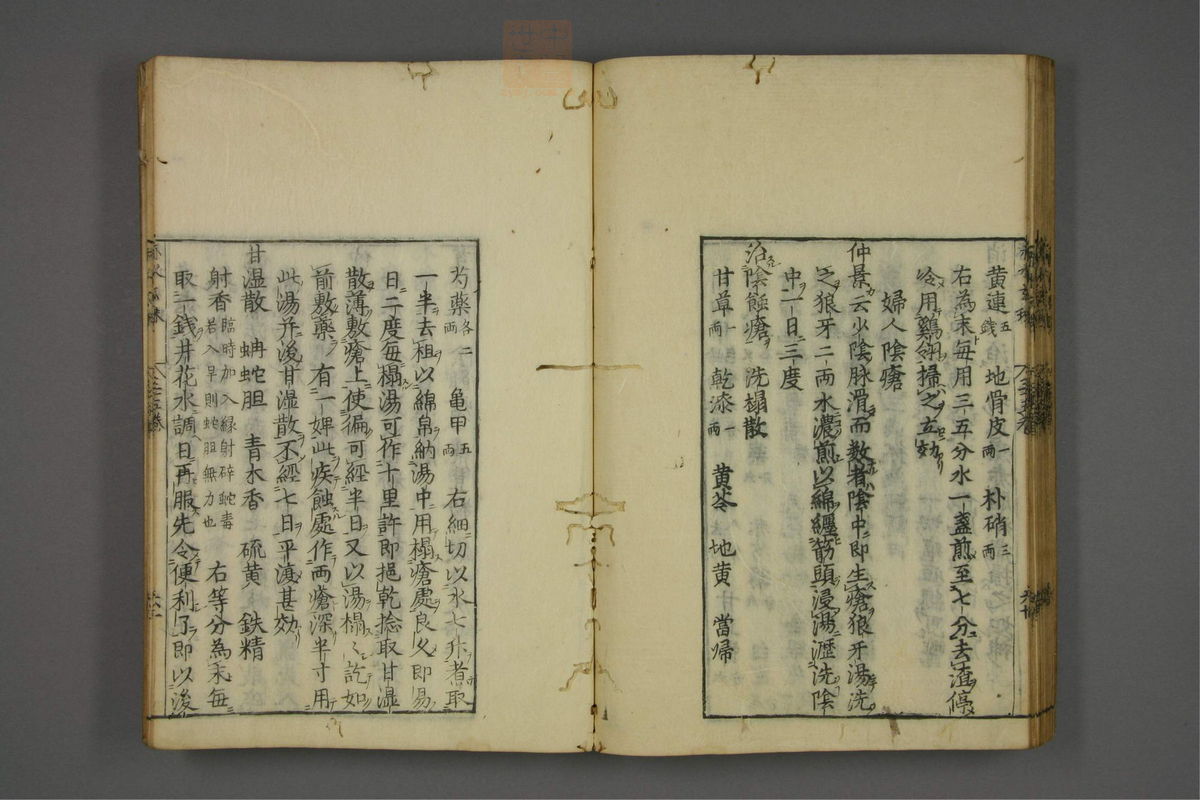 黄連五錢 地骨皮一兩 朴硝三兩
右為末毎用三五分水一盞煎至七分去渣停
冷用鷄翎掃之立効
婦人陰瘡
仲景云少陰脉滑而数者陰中即生瘡狼牙湯洗
之狼牙二兩水濃煎以綿纏筋頭浸湯瀝洗陰
中一日三度
治陰蝕瘡洗榻散
甘草一兩 乾漆一兩 黄芩 地黄 當帰
芍薬各二兩 亀甲五兩 右細切以水七升煮取
一半去租以綿帛納湯中用榻瘡處良久即易
日二度毎榻湯可作十里許即挹乾捻取甘湿
散薄敷瘡上使徧可經半日又以湯榻々訖如
前敷藥有一婢此疾蝕處作両瘡深半寸用
此湯并後甘湿散不經七日平渡甚効
甘湿散 蚺蛇胆 青木香 硫黄 鉄精
射香臨時加入縁射碎蛇毒若入早則蛇胆無力也 右等分為末毎
取一銭井花水調日再服先令便利了即以後